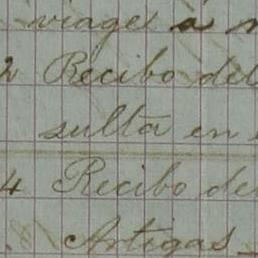 viage á
2 Recibo del
sulta en
4 Recibo de
Artigas